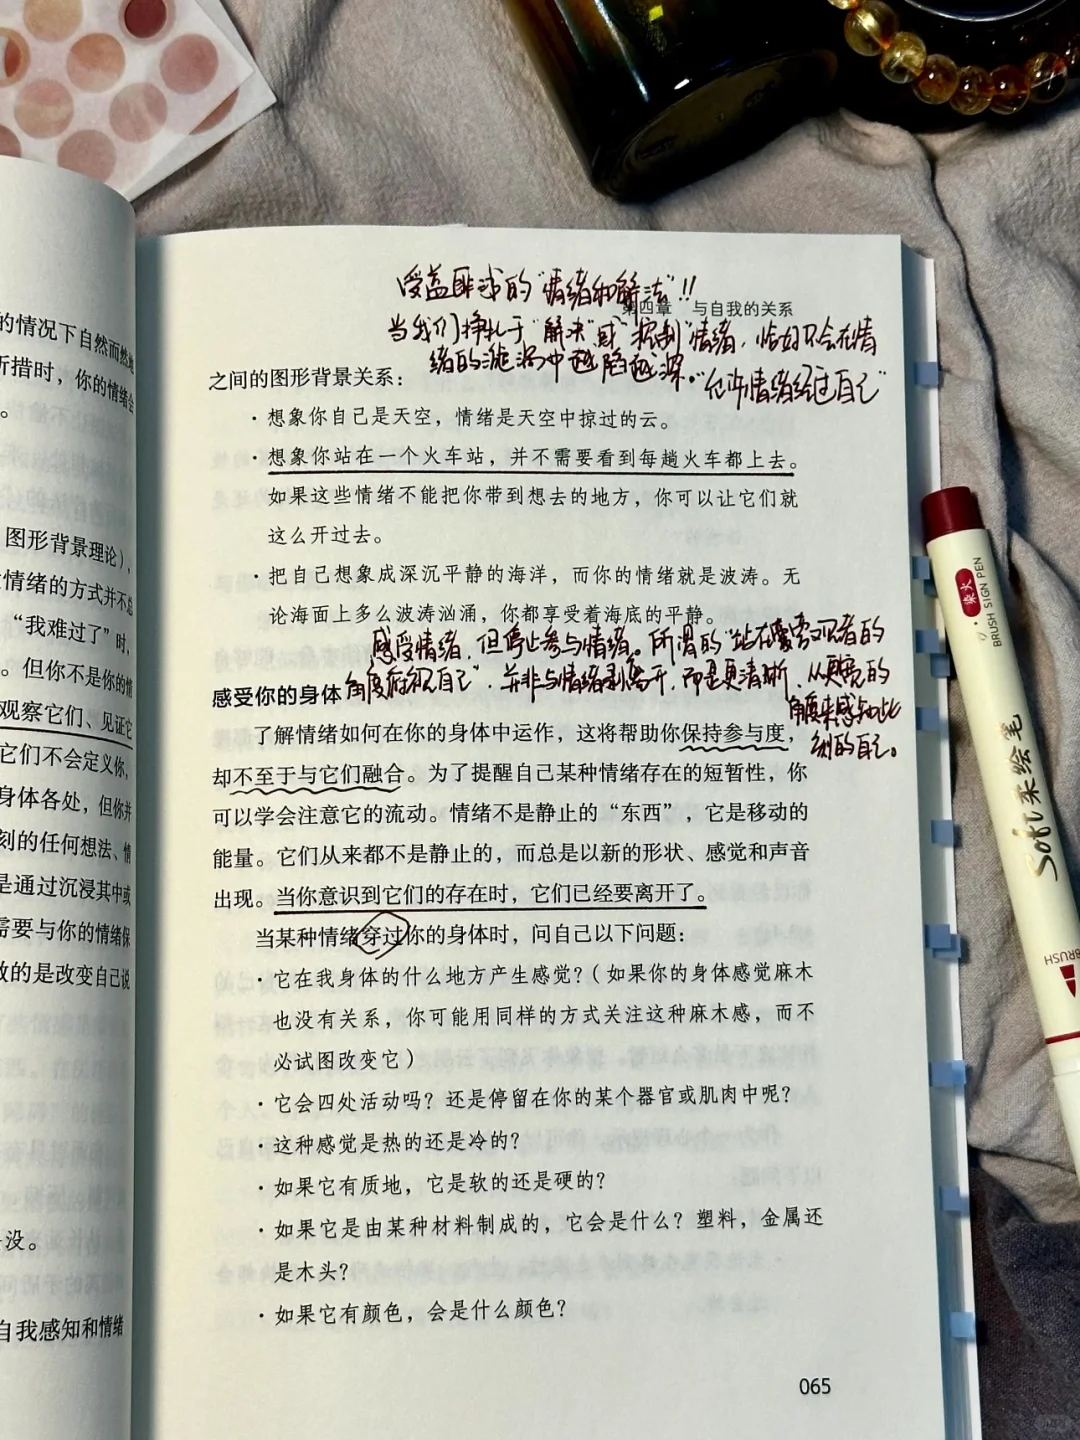 的情况下自然而然地
所措时，你的情绪会
。
图形背景理论），
情绪的方式并不总
“我难过了”时，
。但你不是你的情
观察它们、见证它
它们不会定义你，
身体各处，但你并
刻的任何想法、情
是通过沉浸其中或
需要与你的情绪保
做的是改变自己说
没。
自我感知和情绪
受益匪浅的“情绪和解法”!!
第四章 与自我的关系
当我们挣扎于“解决”或“控制”情绪，恰好只会在情
绪的漩涡中越陷越深。“允许情绪经过自己”
之间的图形背景关系：
·想象你自己是天空，情绪是天空中掠过的云。
·想象你站在一个火车站，并不需要看到每趟火车都上去。
如果这些情绪不能把你带到想去的地方，你可以让它们就
这么开过去。
·把自己想象成深沉平静的海洋，而你的情绪就是波涛。无
论海面上多么波涛汹涌，你都享受着海底的平静。
感受情绪，但停止参与情绪。所谓的“站在旁观者的
感受你的身体
角度俯视自己”，并非与情绪剥离开，而是更清晰、从更宽的
角度来感知此
刻的自己。
了解情绪如何在你的身体中运作，这将帮助你保持参与度，
却不至于与它们融合。为了提醒自己某种情绪存在的短暂性，你
可以学会注意它的流动。情绪不是静止的“东西”，它是移动的
能量。它们从来都不是静止的，而总是以新的形状、感觉和声音
出现。当你意识到它们的存在时，它们已经要离开了。
当某种情绪穿过你的身体时，问自己以下问题：
·它在我身体的什么地方产生感觉？（如果你的身体感觉麻木
也没有关系，你可能用同样的方式关注这种麻木感，而不
必试图改变它）
·它会四处活动吗？还是停留在你的某个器官或肌肉中呢？
·这种感觉是热的还是冷的？
·如果它有质地，它是软的还是硬的？
·如果它是由某种材料制成的，它会是什么？塑料，金属还
是木头？
·如果它有颜色，会是什么颜色？
065
柴火
BRUSH SIGN PEN
Soft柔绘笔
BRUSH